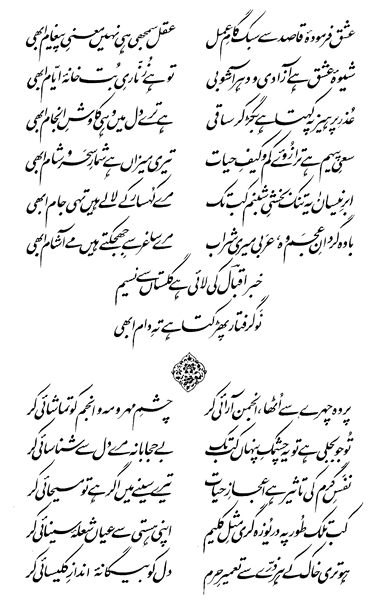 عشق فرمودۂ قاصد سے سبک گامِ عمل عقل سمجھی ہی نہیں معنیِ پیغام ابھی
شیوۂ عشق ہے آزادی و دہر آشوبی تو ہے زنّاریِ بت خانۂ ایّام ابھی
عذرِ پرہیز پہ کہتا ہے بگڑ کر ساقی ہے ترے دل میں وہی کاوشِ انجام ابھی
سعیِ پیہم ہے ترازوئے کم و کیفِ حیات تیری میزاں ہے شمارِ سحر و شام ابھی
ابرِ نیساں! یہ تنک بخشیِ شبنم کب تک مرے کہسار کے لالے ہیں تہی جام ابھی
بادہ گردانِ عجم وہ، عربی میری شراب مرے ساغر سے جھجکتے ہیں مے آشام ابھی
خبر اقبالؔ کی لائی ہے گلستاں سے نسیم
نو گرفتار پھڑکتا ہے تہِ دام ابھی
پردہ چہرے سے اٹھا، انجمن آرائی کر چشمِ مہر و مہ و انجم کو تماشائی کر
تو جو بجلی ہے تو یہ چشمکِ پنہاں کب تک بے حجابانہ مرے دل سے شناسائی کر
نفسِ گرم کی تاثیر ہے اعجازِ حیات تیرے سینے میں اگر ہے تو مسیحائی کر
کب تلک طور پہ دریوزہ گری مثلِ کلیم اپنی ہستی سے عیاں شعلۂ سینائی کر
ہو تری خاک کے ہر ذرّے سے تعمیرِ حرم دل کو بیگانۂ اندازِ کلیسائی کر